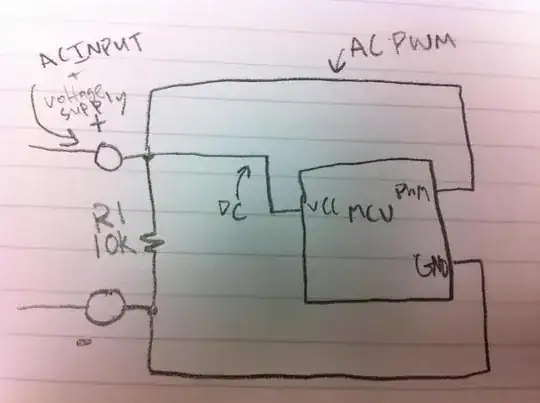 AC INPUT
+
Voltage
supply
+
AC PWM
R1
10k
DC
VCC
MCU
PWM
GND
-